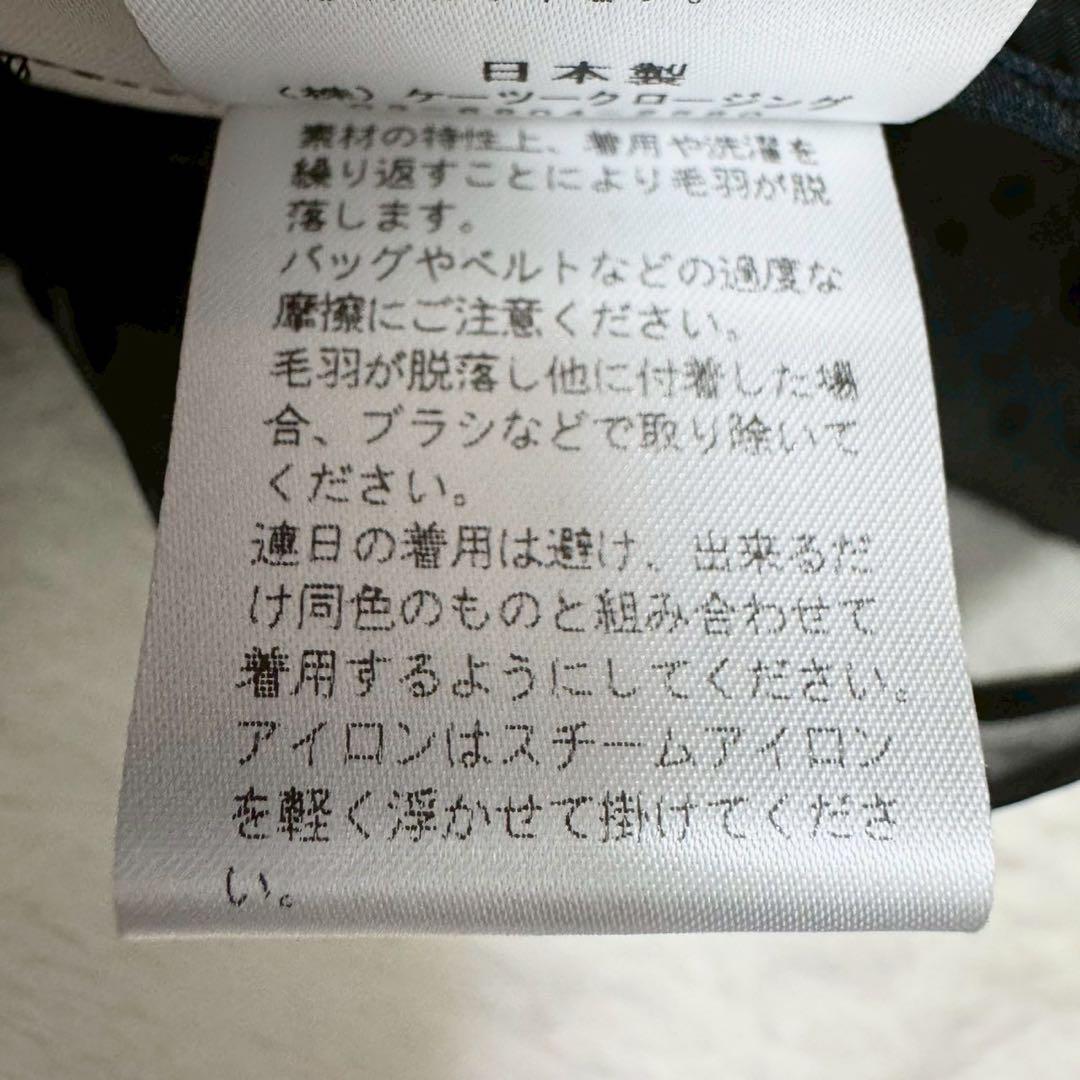 日本製
(株)ケーツークロージング
素材の特性上、着用や洗濯を
繰り返すことにより毛羽が脱
落します。
バッグやベルトなどの過度な
摩擦にご注意ください。
毛羽が脱落し他に付着した場
合、ブラシなどで取り除いて
ください。
連日の着用は避け、出来るだ
け同色のものと組み合わせて
着用するようにしてください。
アイロンはスチームアイロン
を軽く浮かせて掛けてくださ
い。